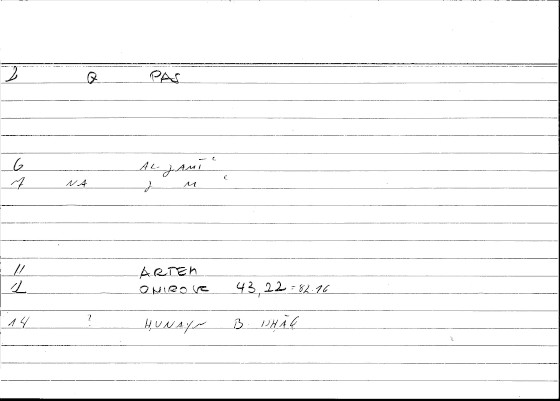 Q PAS
6 AL-JAMI ͨ
7 NA J M ͨ
11 ARTEM
12 ONIROCR 43,22 = 82.16
14 ? HUNAYN B ISHĀQ